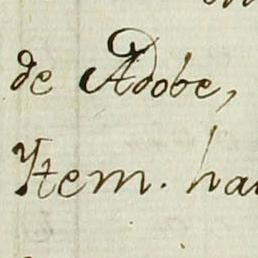 de Adobe,
Ytem. ha